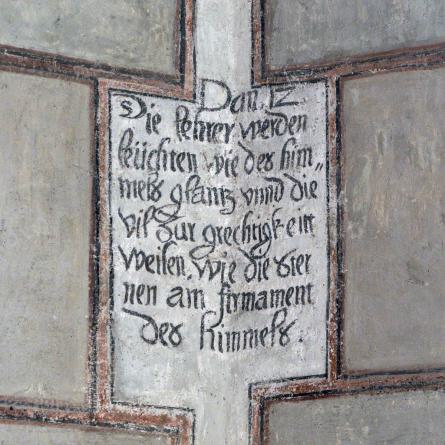 Dan. 12
Die lehrer werden
leüchten wie des him„
mels glantz vnnd die
vil zur grechtigkeit
weisen. wie die ster
nen am firmament
des himmels.